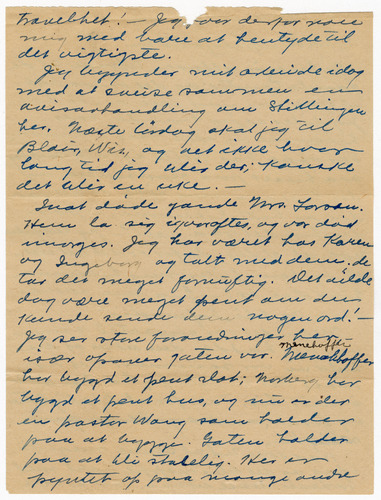 travelhet! – Jeg har derfor nøie
mig med bare at hentyde til
det vigtigste.
Jeg begynder mit arbeide idag
med at sveise sammen en
avisavhandling om Stillingen
her. Næste lørdag skal jeg til
Blair, Wis., og vet ikke hvor
lang tid jeg blir der; kanske
det blir en uke. –
Inat døde gamle Mrs.
Hun la sig igaaraftes, og var død
imorges. Jeg har været hos Karen
og Ingeborg og talt med dem. de
tar det meget fornuftig. Det vilde
dog være meget pent om du
kunde sende dem nogen ord! –
Jeg ser store forandringer her
især opover gaten vor. Menehoffer
Menehoffer
har bygd et pent slot; Norberg har
bygd et pent hus, og nu er der
en pastor Wang som holder
paa at bygge. Gaten holder
paa at bli statelig. Her er
pyntet op paa mange andre